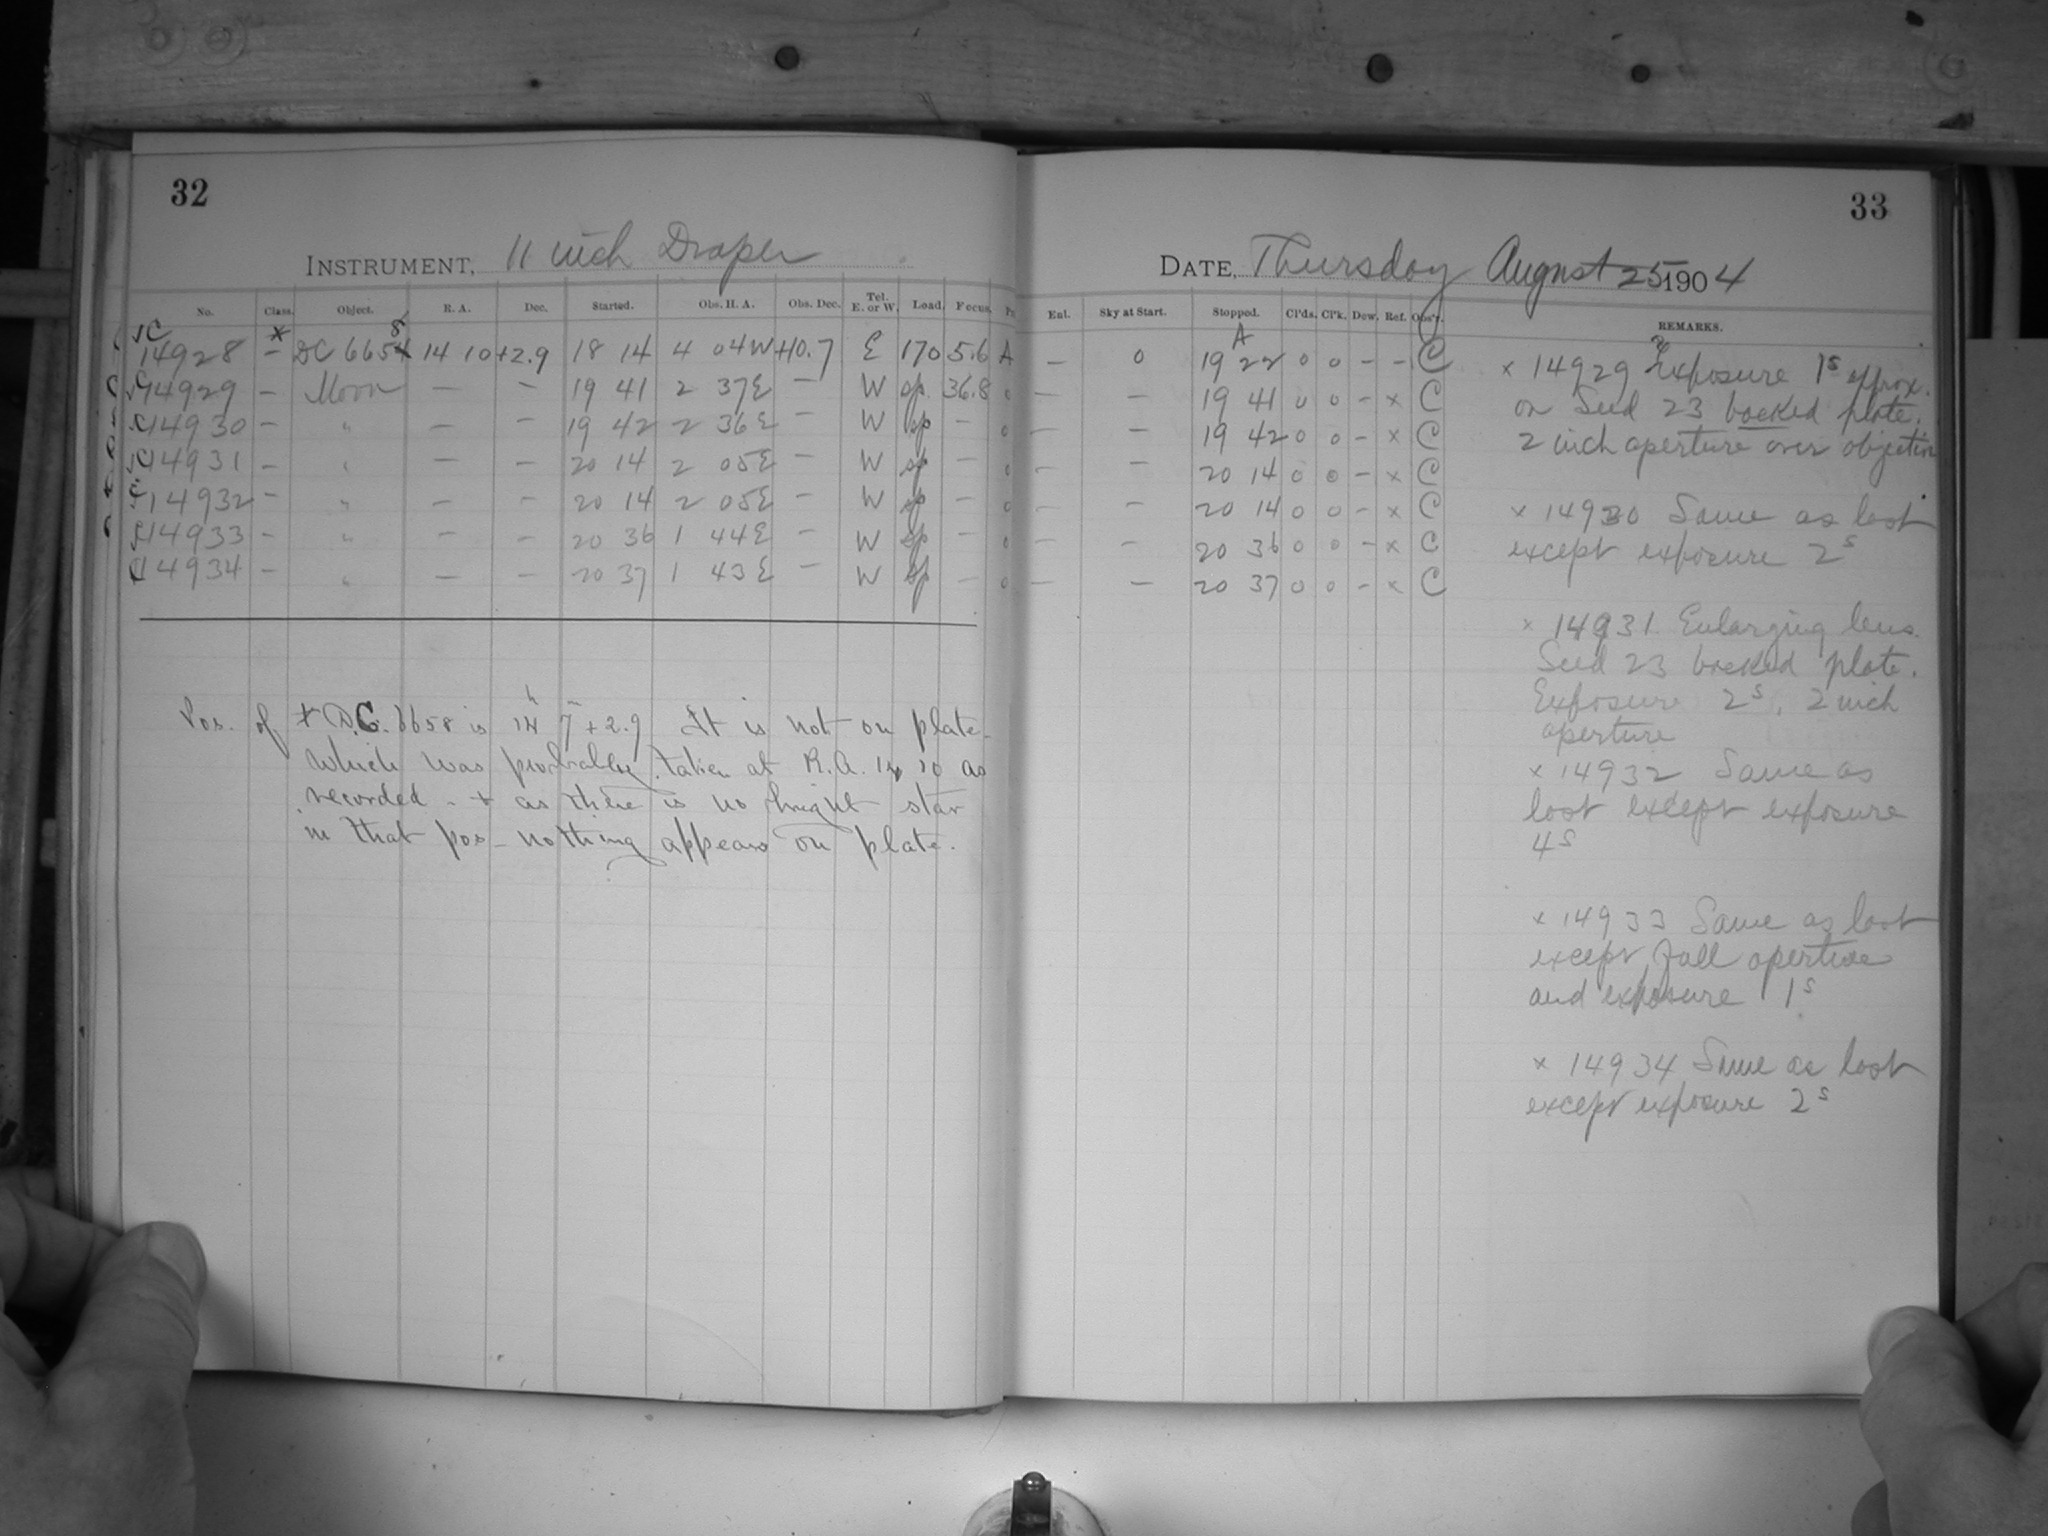 32
INSTRUMENT, 11 inch Draper
No. Class. Object. R. A. Dec. Started. Obs. H. A. Obs. Dec. Tel. E. or W. Load. Focus.
C 14928 * - DC 6658 14 10 +2.9 18 14 4 04W +10.7 E 170 5.6 A
C 14929 - Moon - - 19 41 2 37E - W sp. 36.8 0
C 14930 - " - - 19 42 2 36E - W sp - 0
C 14931 - " - - 20 14 2 05E - W sp - 0
C 14932 - " - - 20 14 2 05E - W sp - 0
C 14933 - " - - 20 36 1 44E - W sp - 0
C 14934 - " - - 20 37 1 43E - W sp - 0
Pos. of * D.C. 6658 is 14h 7m +2.9 It is not on plate -
which was probably taken at R.A. 14 10 as
recorded - + as there is no bright star
in that pos - nothing appears on plate.
33
DATE, Thursday August 25 1904
Enl. Sky at Start. Stopped. Cl'ds. Cl'k. Dew. Ref. Obs'r. REMARKS.
- 0 19 22 A 0 0 - - C
- - 19 41 0 0 - x C
- - 19 42 0 0 - x C
- - 20 14 0 0 - x C
- - 20 14 0 0 - x C
- - 20 36 0 0 - x C
- - 20 37 0 0 - x C
x 14929 Exposure 1s approx.
on Seed 23 backed plate.
2 inch aperture over objective
x 14930 Same as last
except exposure 2s
x 14931 Enlarging lens.
Seed 23 backed plate.
Exposure 2s. 2 inch
aperture
x 14932 Same as
last except exposure
4s
x 14933 Same as last
except full aperture
and exposure 1s
x 14934 Same as last
except exposure 2s